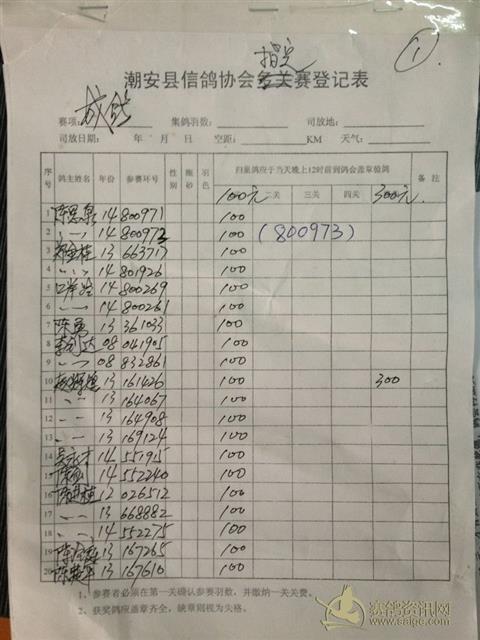 指定
①
潮安县信鸽协会多关赛登记表
赛项： 成鸽 集鸽羽数： 司放地：
司放日期： 年 月 日 空距： KM 天气：
序号 鸽主姓名 年份 参赛环号 性别 眼砂 羽色 归巢鸽应于当天晚上12时前到鸽会盖章验鸽 备注
100元 二关 三关 四关 300元
1 14 800971 100
2 14 800973 100 (800973)
3 13 663717 100
4 14 801926 100
5 14 800269 100
6 14 800261 100
7 陈勇 13 361033 100
8 08 041905 100
9 08 832861 100
10 13 161426 100 300
11 13 164067 100
12 13 164908 100
13 13 169124 100
14 14 551915 100
15 14 552240 100
16 12 026512 100
17 13 668882 100
18 14 552275 100
19 13 167265 100
20 13 167610 100
1、参赛者必须在第一关确认参赛羽数，并缴纳一关关费。
2、获奖鸽应盖章齐全，缺章则视为失格。
赛鸽资讯网
www.saige.com